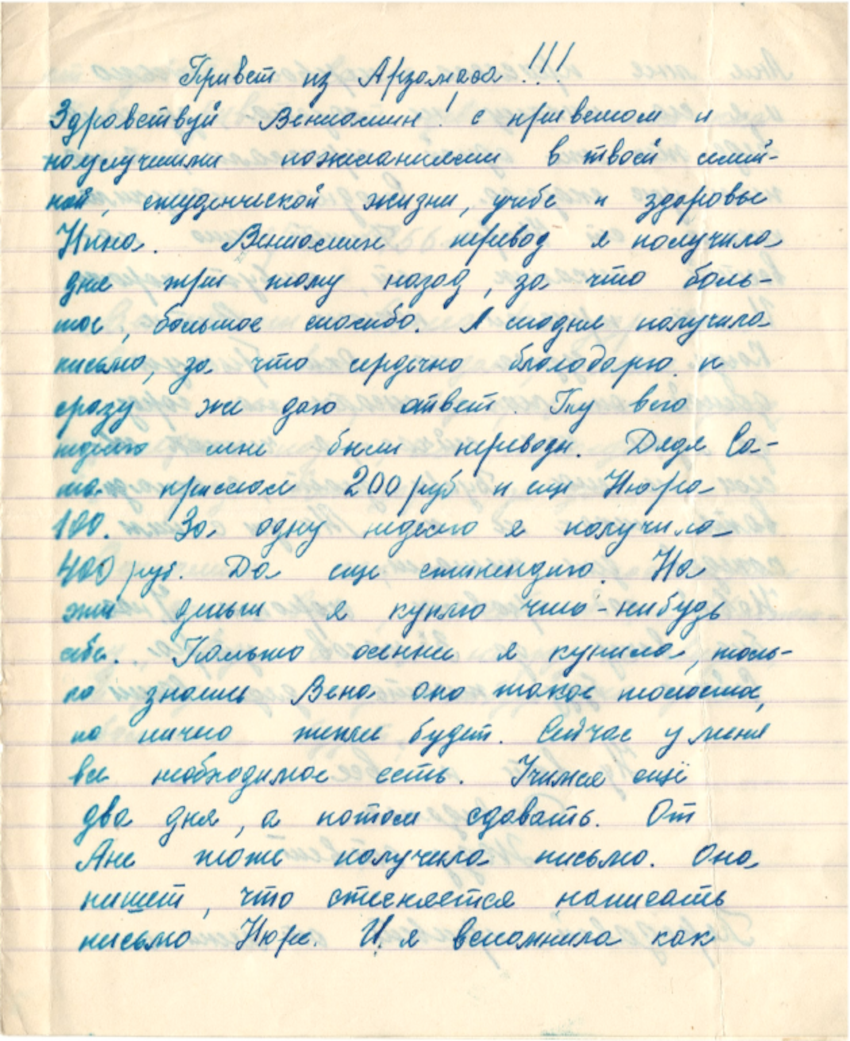 Привет из Арзамаса!!!
Здравствуй Вениамин! с приветом и
наулучшими пожеланиями в твоей семей-
ной, студенческой жизни, учебе и здоровье
Нина. Вениамин перевод я получила
дня три тому назад, за что боль-
шое, большое спасибо. А сегодня получила
письмо, за что сердечно благодарю и
сразу же даю ответ. Ту всю
неделю мне были переводы. Дядя Са-
ша прислал 200 руб и еще Нюра
100. За одну неделю я получила
400 руб. Да еще стипендию. На
эти деньги я куплю что-нибудь
себе. Пальто осенью я купила, толь-
ко знаешь Вена оно такое
но ничего теплее будет. Сейчас у меня
все необходимое есть. Учимся ещё
два дня, а потом сдавать. От
Ани тоже получила письмо. Она
пишет, что стесняется написать
письмо Нюре. И я вспомнила как